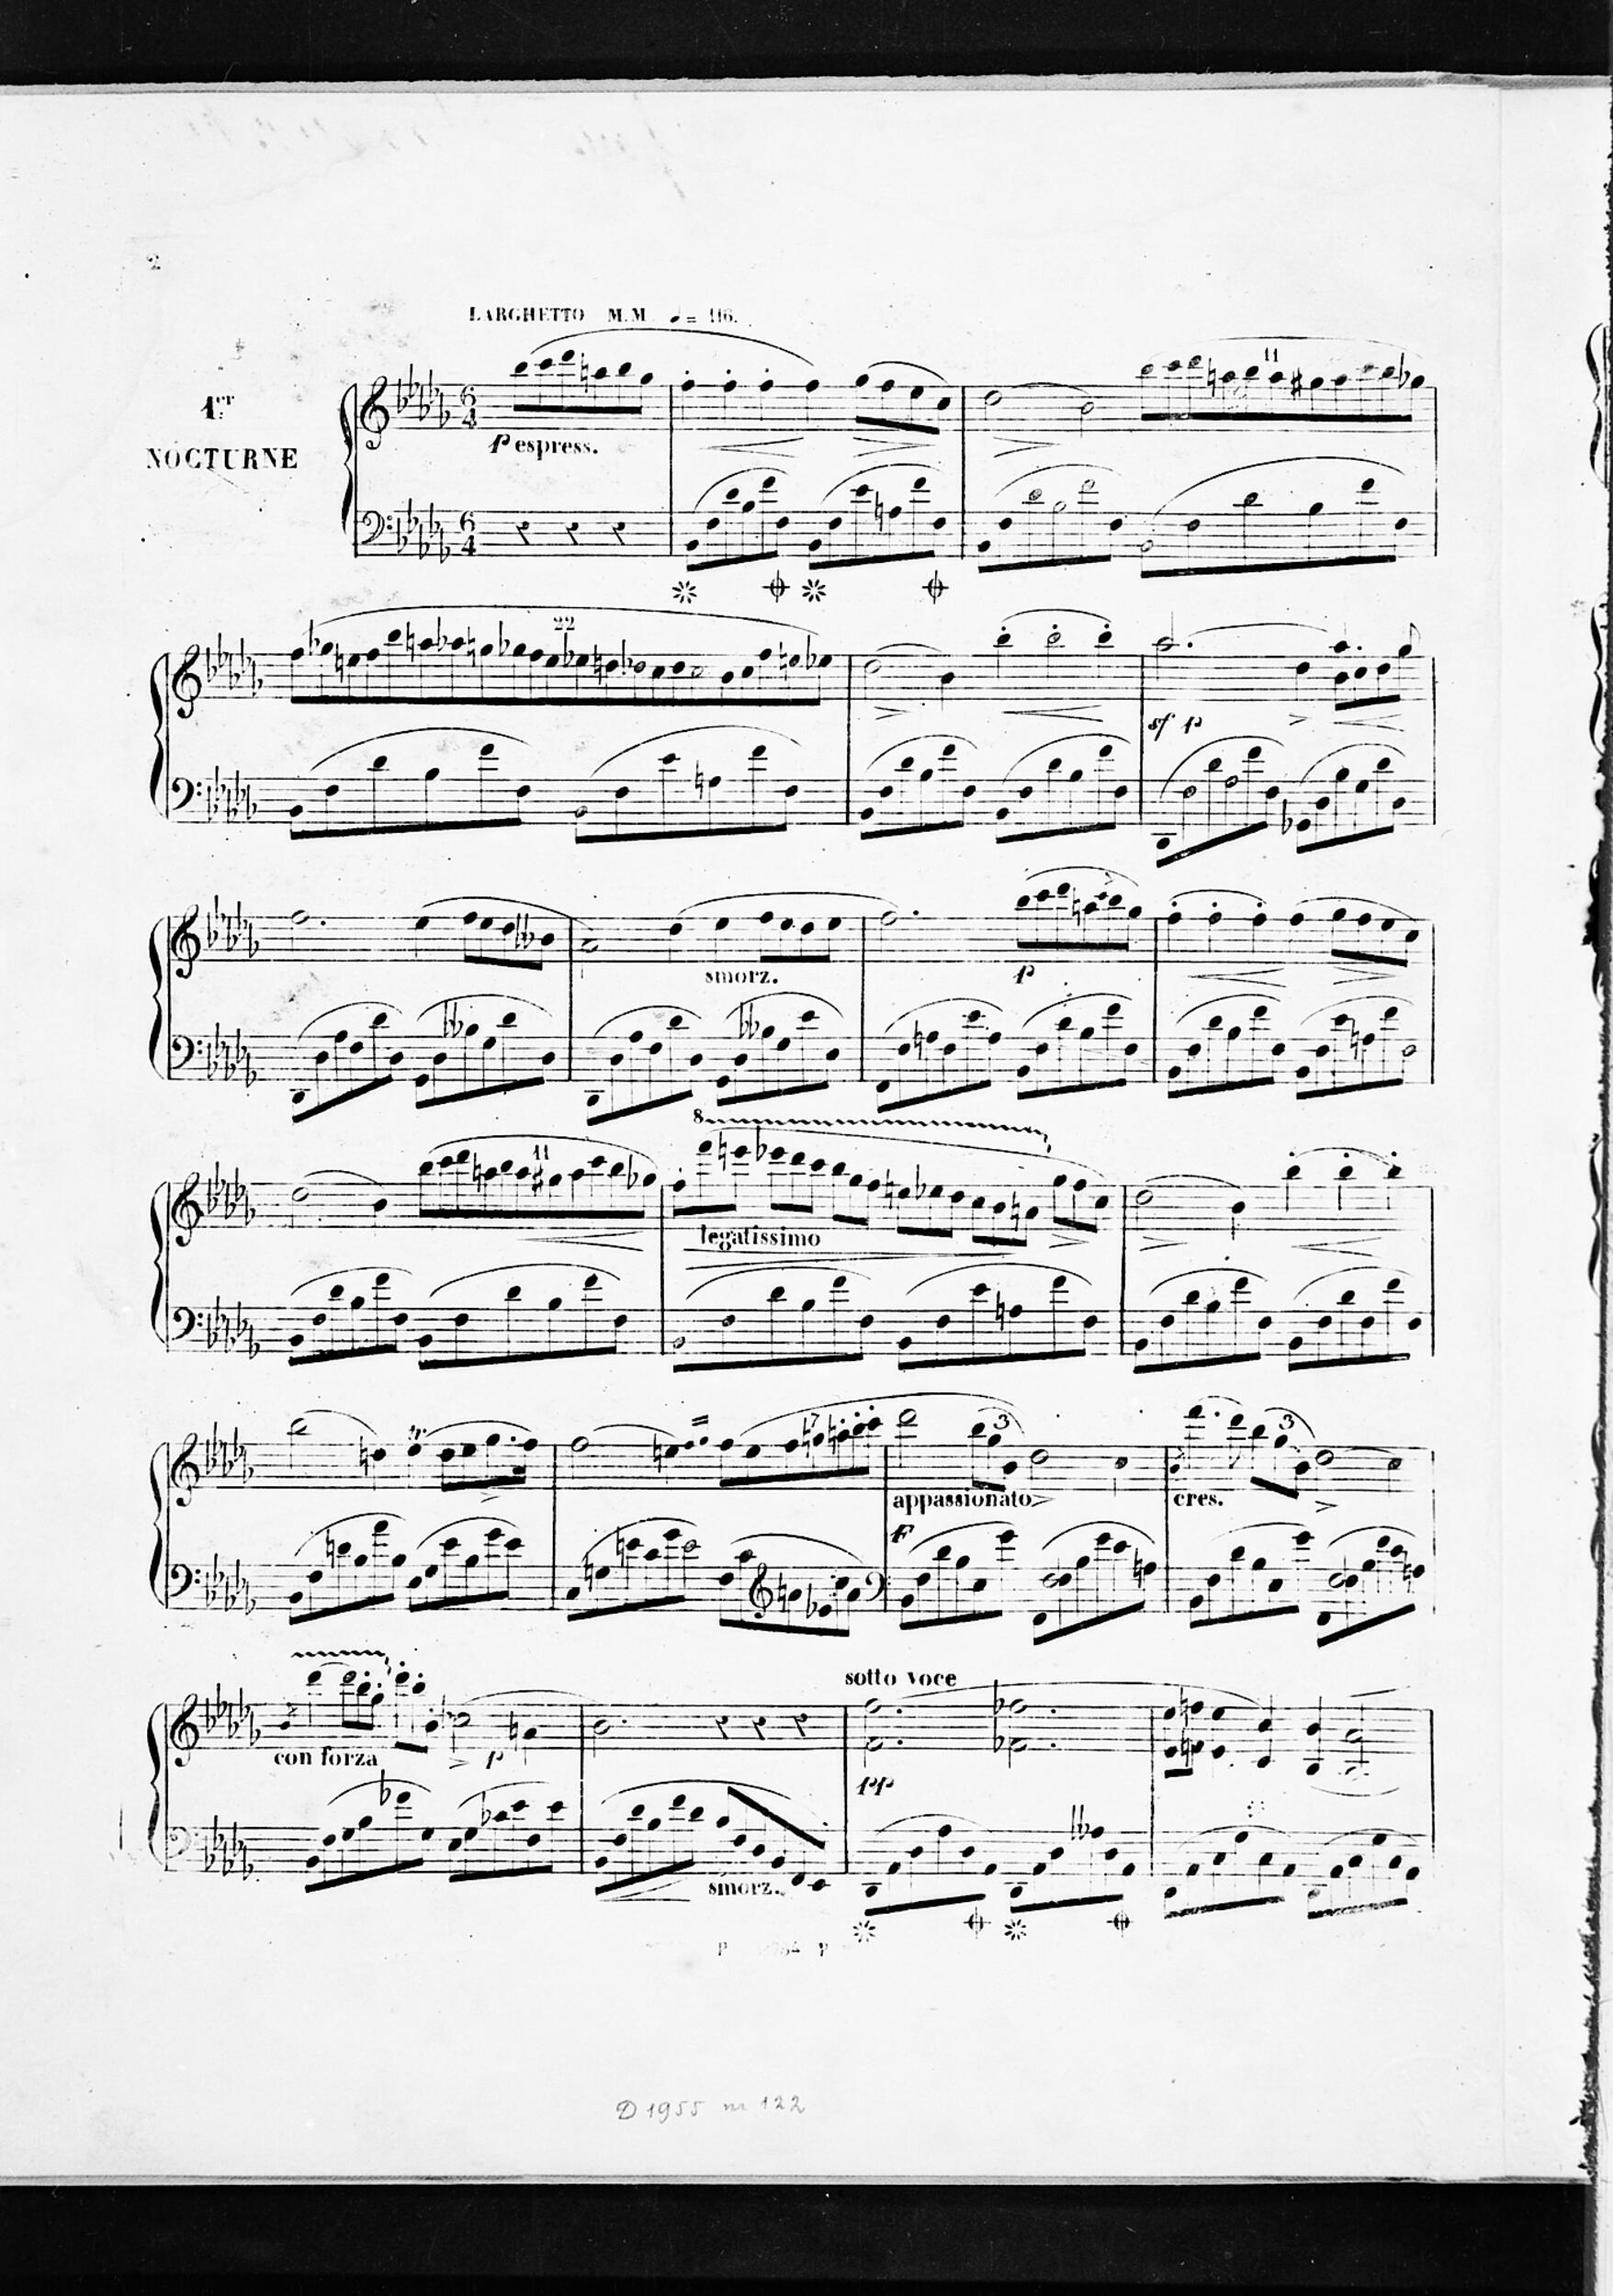 2
LARGHETTO M.M ♩= 116.
1er
NOCTURNE
6
4
11
p espress.
6
4
22
sf p
smorz.
p
8
11
legatissimo
3
3
appassionato
cres.
F
sotto voce
con forza
p
pp
smorz.
D 1955 nr 122